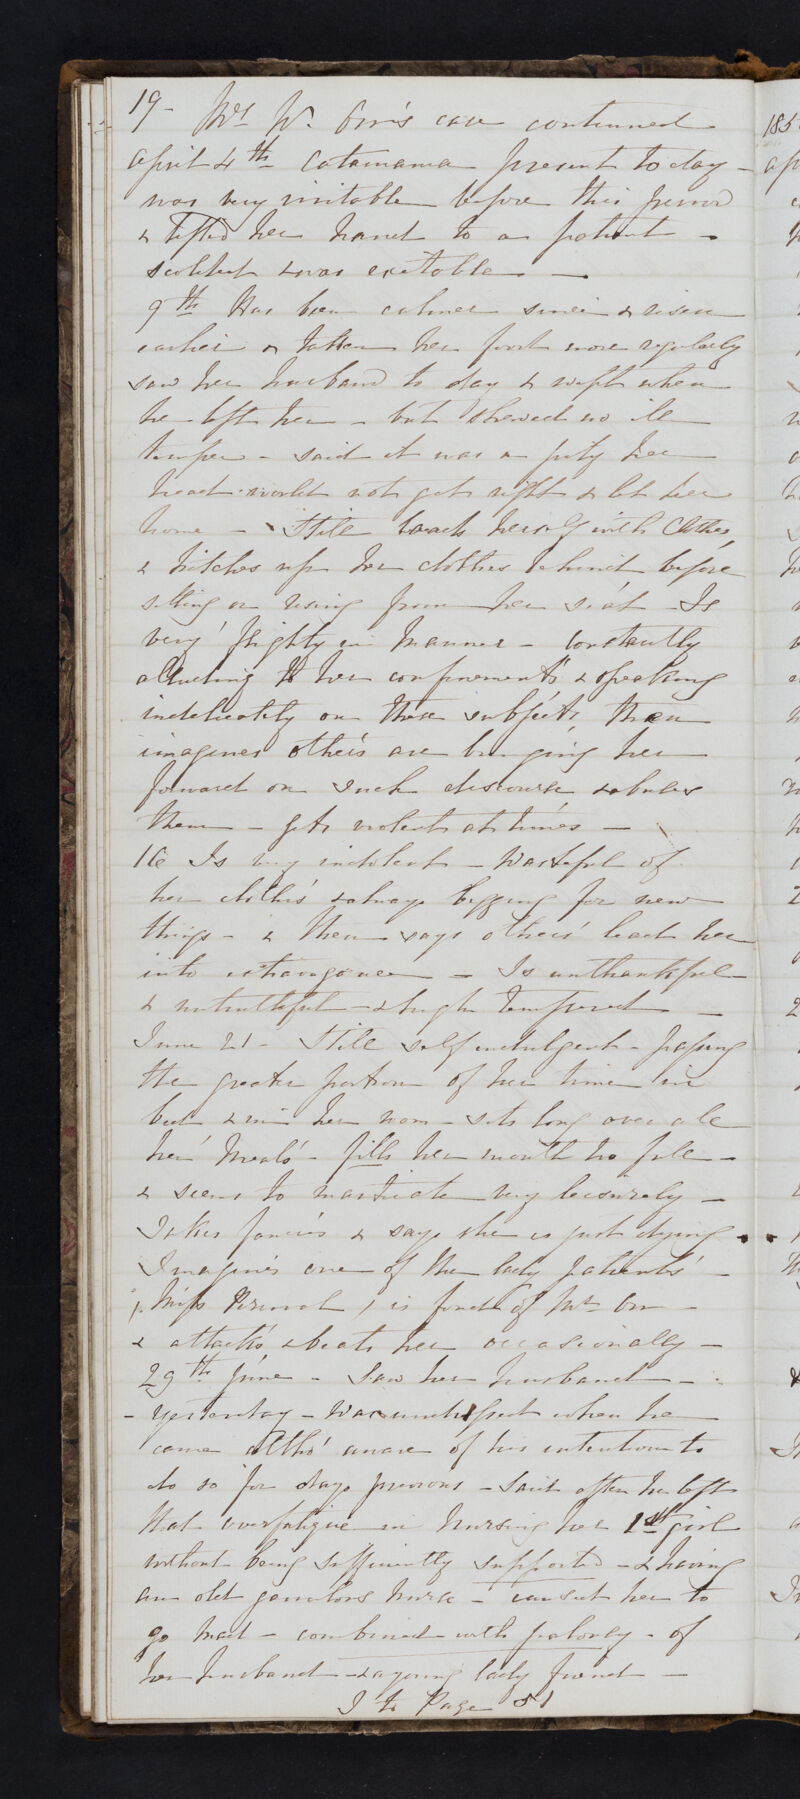 19 - Mrs W. Orr's case continued
April 4th Catamania present to day -
was very irritable before this period
& lifted her hand to a patient -
scolded & was excitable -
9th Has been calmer since & risen
earlier & taken her food more regularly
saw her husband to day & wept when
he left her - but shewed no ill
temper - said it was a pity her
head would not get right & let her
home - Still herself with clothes,
& hitches up her clothes behind before
sitting or rising from her seat - Is
very flighty in manner - constantly
alluding to her confinements & speaking
indelicately on these subjects, then
imagines others are bringing her
forward on such discourse & abuses
them - gets violent at times -
16 Is very indolent - wasteful of
her clothes & always begging for new
things - & then says others lead her
into extravagance - Is unthankful
& untruthful - & high tempered -
June 21 - Still self indulgent - passing
the greater portion of her time in
bed & in her room - sits long over all
her meals - fills her mouth too full -
& seems to masticate very leisurely -
Takes fancies & says she is just dying -
Imagines one of the lady patients -
Miss , is fond of Mr Orr -
& attacks & beats her occasionally -
29th June - Saw her husband -
- yesterday - was undressed when he
came altho' aware of his intention to
do so for days previous - Said after he left
that overfatigue in nursing her 1st girl
without being sufficiently supported - & having
an old garrulous nurse - caused her to
go mad - combined with jealousy - of
her husband - & a young lady friend -
I to Page 51
185